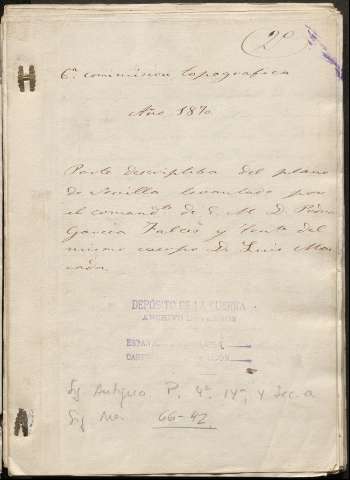 (2º)
6ª comision topografica
Año 1870
Parte descriptiba del plano
de Sevilla levantado por
el comand.te de E. M. D. Pedro
Garcia y tente del
mismo cuerpo D. Luis
DEPÓSITO DE LA GUERRA
ARCHIVO DE PLANOS
ESPAÑA
Sig. Antigua P. 4ª, 1ª, y Sec. a
Sig. Na. 66-42